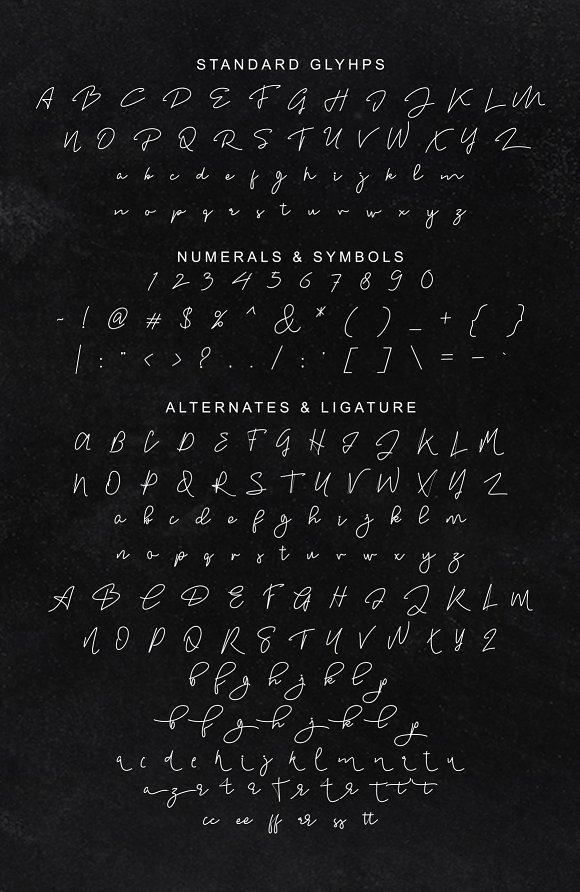 STANDARD GLYHPS
A B C D E F G H I J K L M
N O P Q R S T U V W X Y Z
a b c d e f g h i j k l m
n o p q r s t u v w x y z
NUMERALS & SYMBOLS
1 2 3 4 5 6 7 8 9 0
~ ! @ # $ % ^ & * ( ) _ + { }
| : " < > ? . . / : ' [ ] \ = - `
ALTERNATES & LIGATURE
A B C D E F G H I J K L M
N O P Q R S T U V W X Y Z
a b c d e f g h i j k l m
n o p q r s t u v w x y z
A B C D E F G H I J K L M
N O P Q R S T U V W X Y Z
b f g h j k l p
b f g h j k l p
a c d e h i j k l m n r t u
cc ee ff rr ss tt